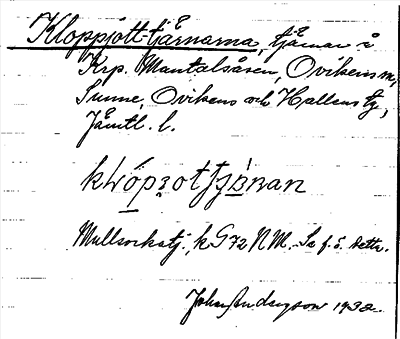 Kloppjott-tjärnarna, tjärnar i
Krp. Mantalsåsen, Ovikens m,
Sunne, Ovikens och Hallens tg,
Jämtl. l.
Mullsockstj. k G 72 N M. Se f. ö. detta.
John Andersson 1932